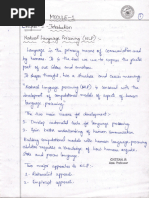 MODULE-1
①
Chapter - Introduction
Natural Language Processing (NLP) :-
Language is the primary means of communication used
by humans. It is the tool we use to express the greater
part of our ideas and emotions.
It shapes thought, has a structure and
"Natural language processing (NLP) is concerned with the
development of computational models of aspects of human
language processing".
There are two main reasons :-
1. Develop automated tools for language processing.
2. Gain a better understanding of human communication.
Building computational models with human language processing
abilities requires a knowledge of how humans acquire,
store and process language.
Two major approaches to NLP :-
1. Rationalist approach
2. Empiricist approach